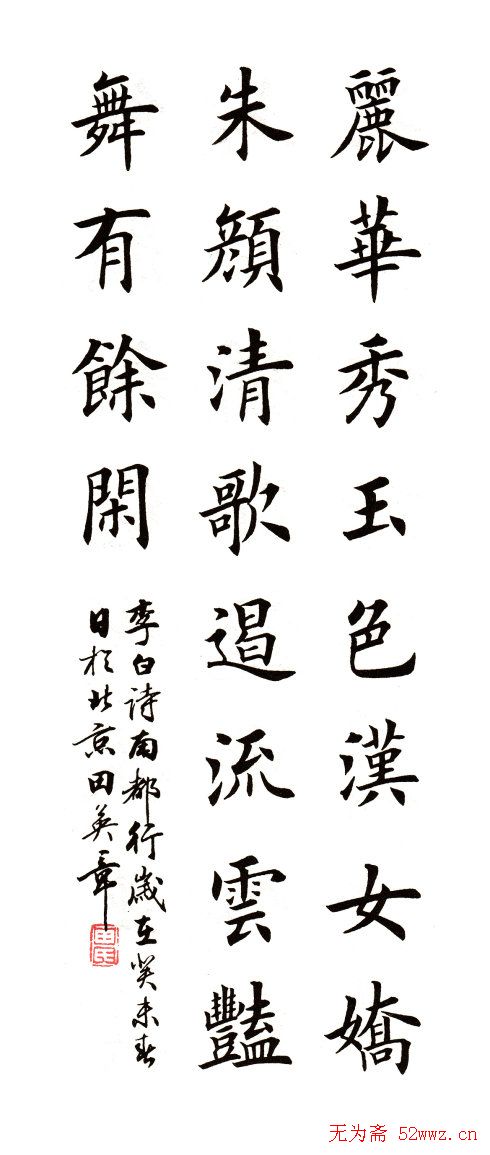 麗華秀玉色漢女嬌
朱顔清歌遏流雲豔
舞有餘閑
李白诗南都行歲在癸未春
日於北京田英章
无为斋 52wwz.cn